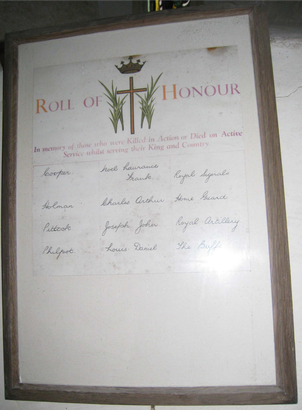 ROLL OF HONOUR
In memory of those who were Killed in Action or Died on Active
Service whilst serving their King and Country.
Cooper Lawrence Frank Royal Signals
Holman Charles Arthur Home Guard
Pittock Joseph John Royal Artillery
Philpot Louis Daniel The Buffs